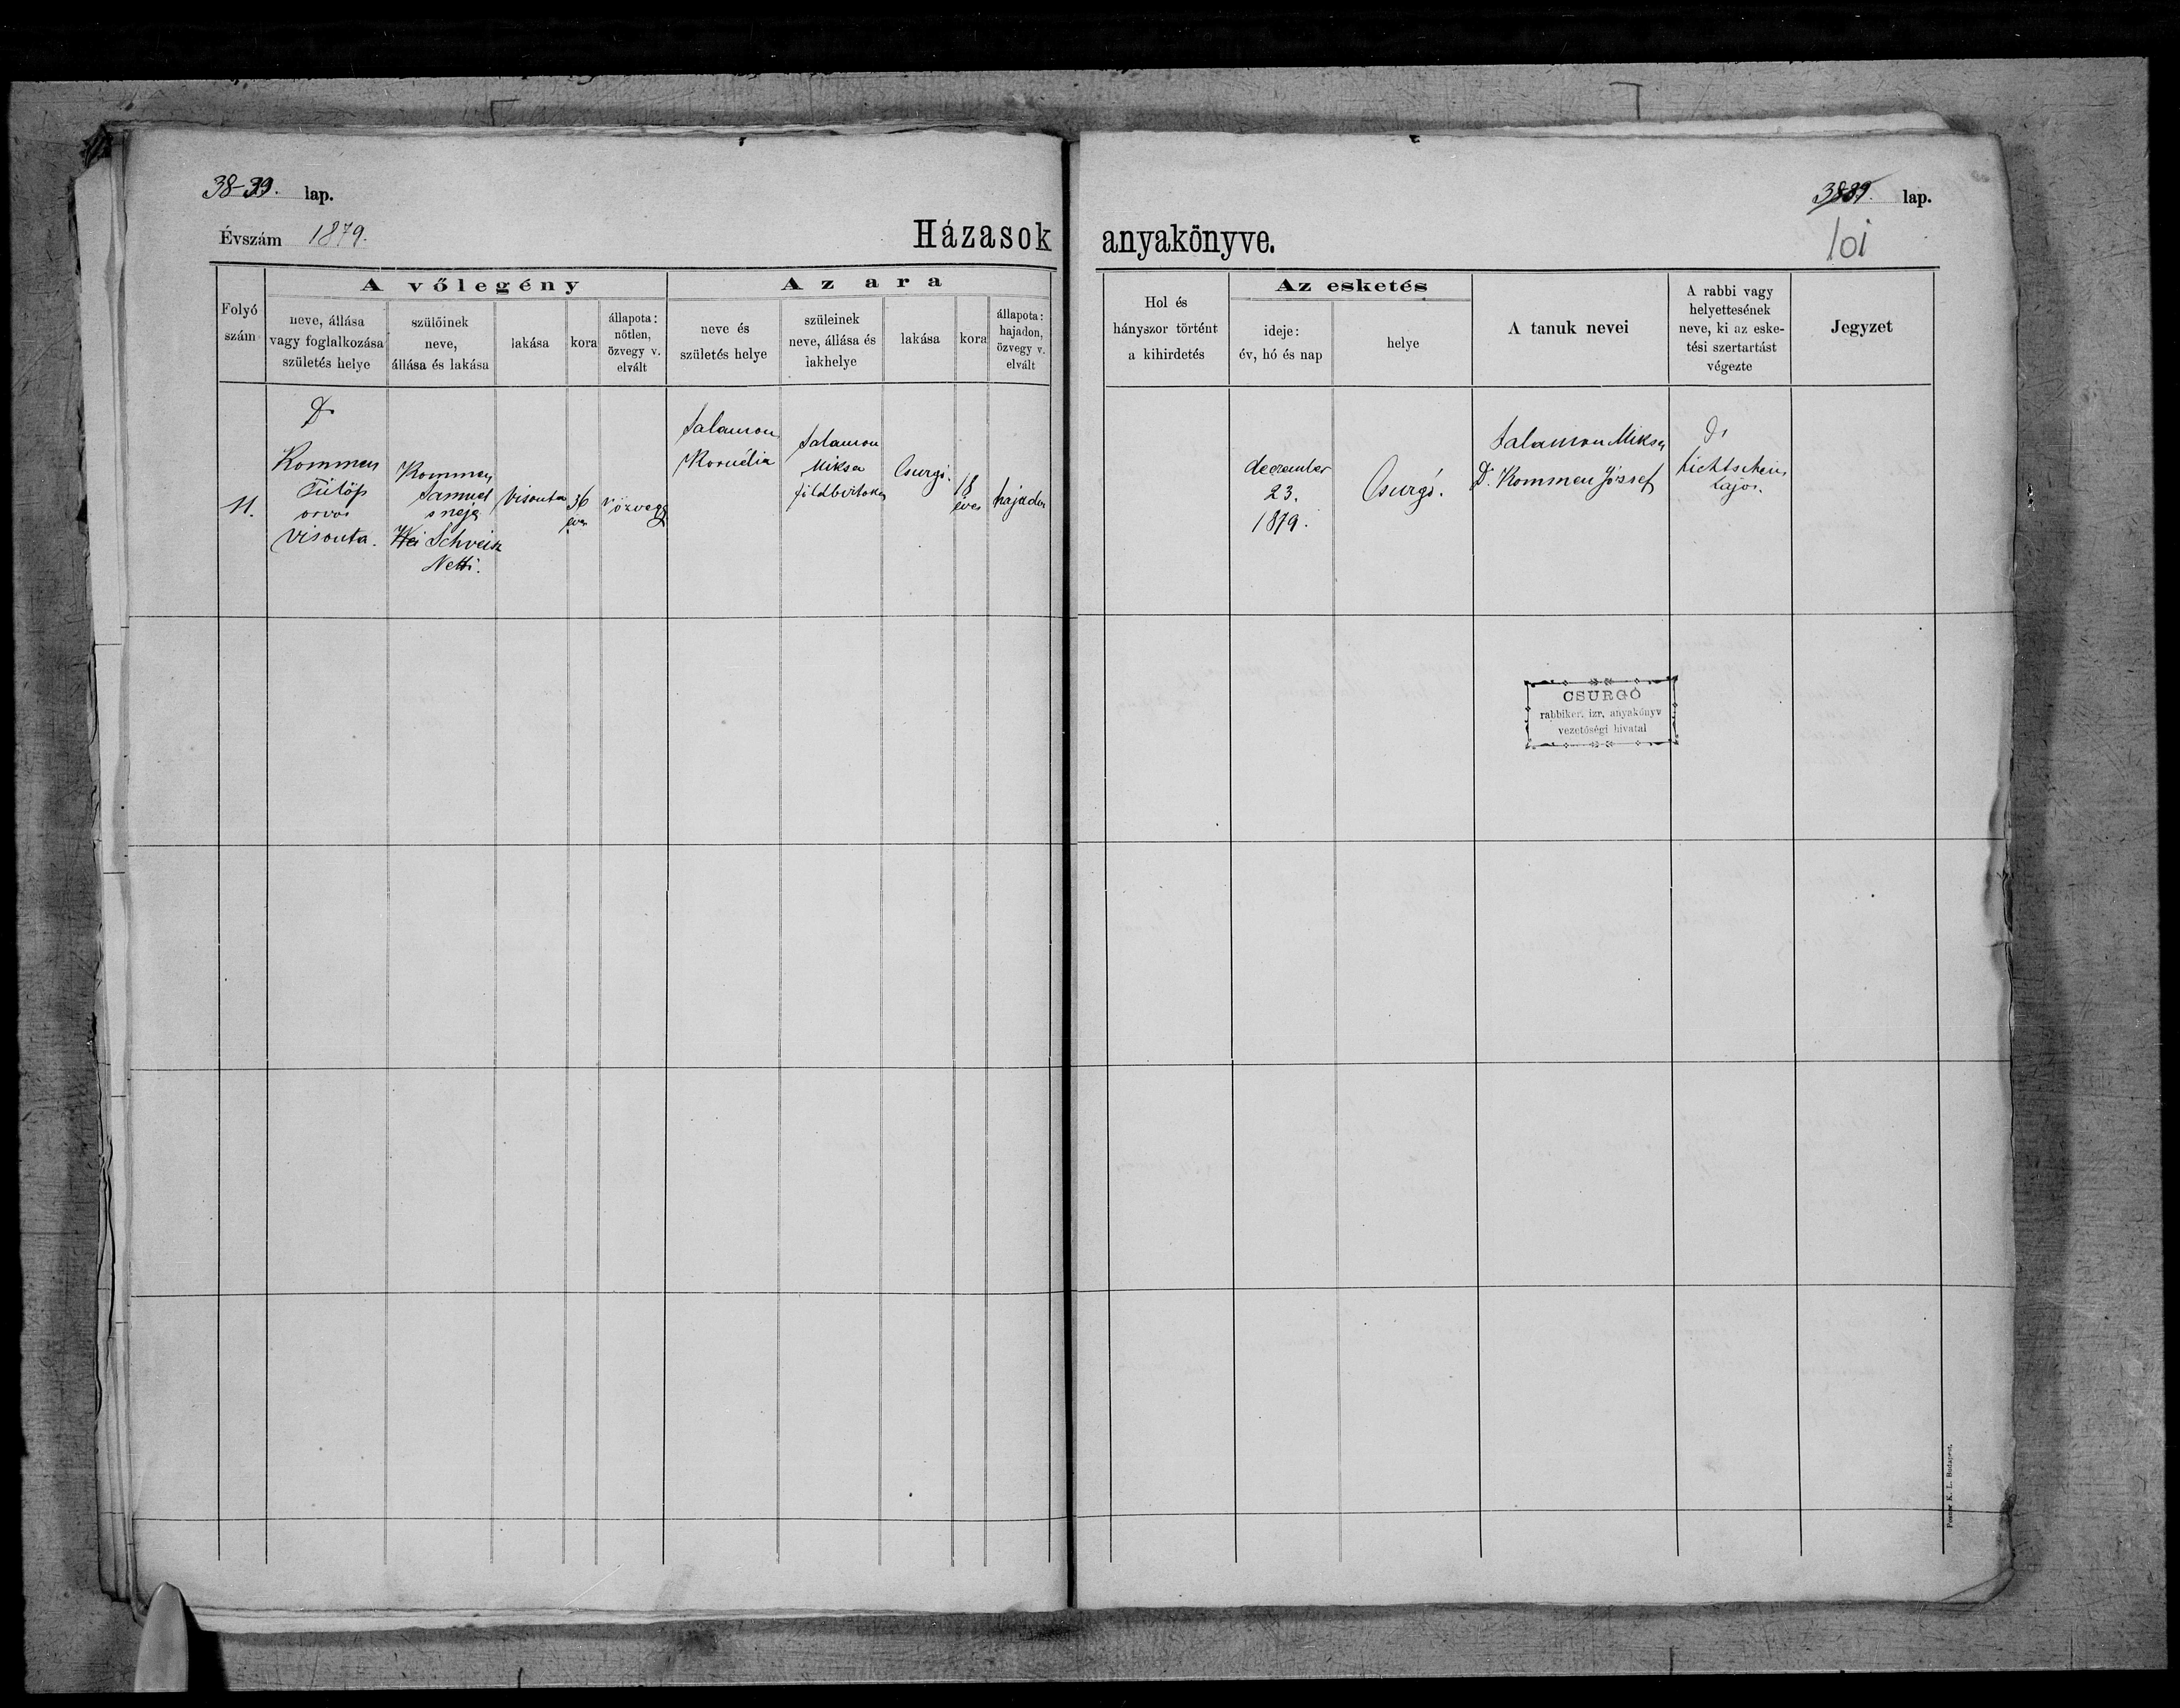 38-39. lap.
Évszám 1879.
Házasok anyakönyve.
lap.
101
Folyó szám
A vőlegény
neve, állása
vagy foglalkozása
születés helye
szülőinek
neve,
állása és lakása
lakása
kora
állapota:
nőtlen,
özvegy v.
elvált
Az ara
neve és
születés helye
szüleinek
neve, állása és
lakhelye
lakása
kora
állapota:
hajadon,
özvegy v.
elvált
Hol és
hányszor történt
a kihirdetés
Az esketés
ideje:
év, hó és nap
helye
A tanuk nevei
A rabbi vagy
helyettesének
neve, ki az eske-
tési szertartást
végezte
Jegyzet
11.
Dr
Kommen
Fülöp
orvos
Visonta.
Kommen
Samuel
s neja
Schveisz
Netti.
Visonta
36
éves
özvegy
Salamon
Kornélia
Salamon
Miksa
földbirtokos
Csurgó.
18
éves
hajadon
december
23.
1879.
Csurgó.
Salamon Miksa
Dr. Kommen József
Dr
Lichtschein
Lajos.
CSURGÓ
rabbiker. izr. anyakönyv
vezetőségi hivatal
K. L. Budapest.